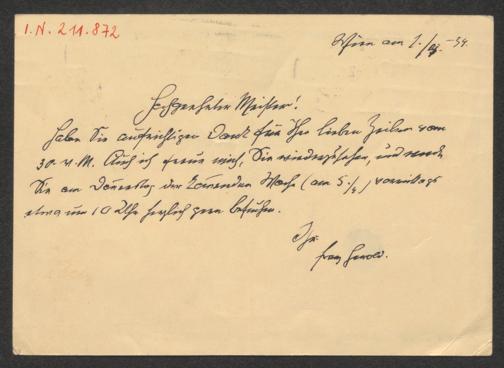 I.N. 211.872
Wien am 1./IV. 34.
Hochverehrter Meister!
Haben Sie aufrichtigen Dank für Ihre lieben Zeilen vom
30. v. M. Auch ich freue mich, Sie wiederzusehen, und werde
Sie am Donnerstag der kommenden Woche (am 5./), vormittags
etwa um 10 Uhr herzlich gern besuchen.
Ihr
Franz